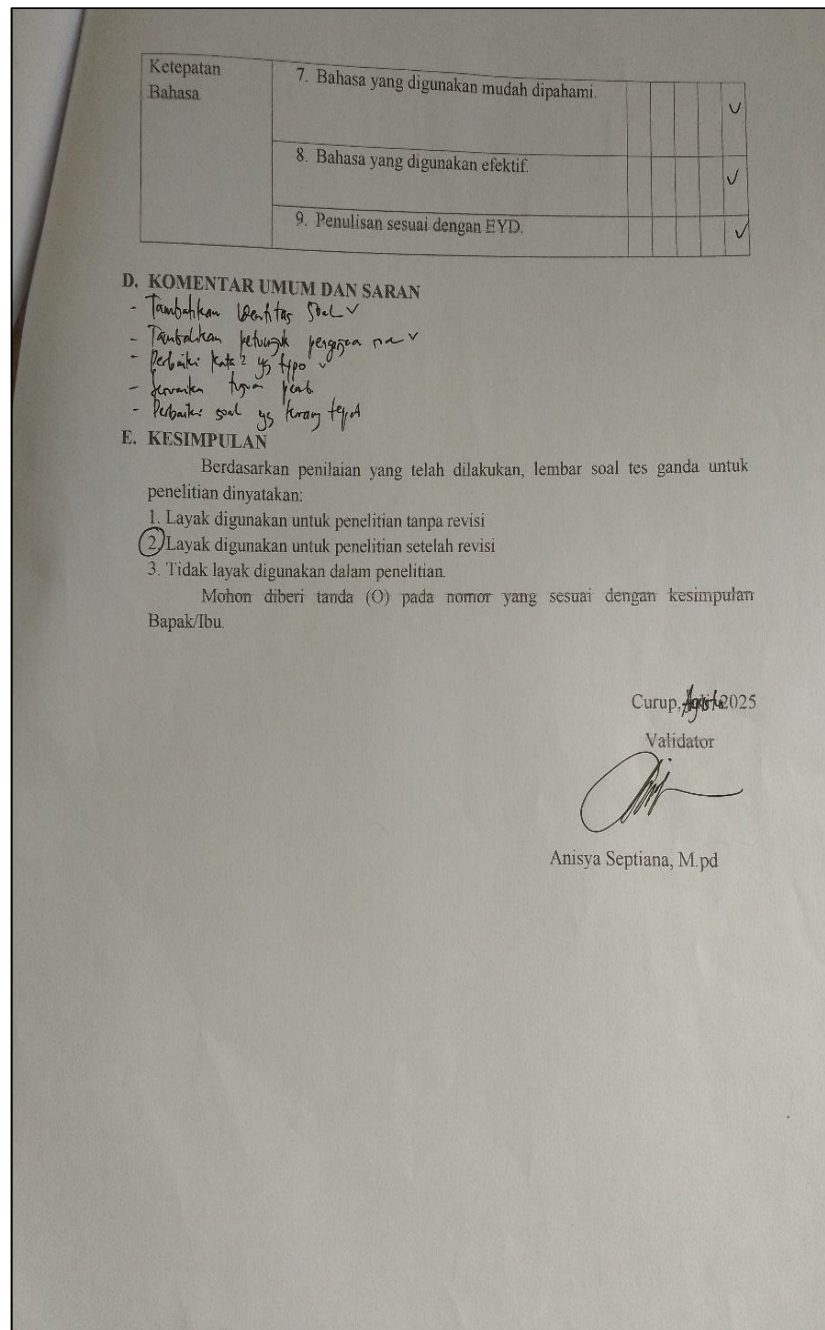 Ketepatan
Bahasa
7. Bahasa yang digunakan mudah dipahami.
8. Bahasa yang digunakan efektif.
9. Penulisan sesuai dengan EYD.
D. KOMENTAR UMUM DAN SARAN
- Tambahkan identitas soal ✓
- Tambahkan petunjuk ✓
- Perbaiki kata2 yg typo ✓
- tujuan
- Perbaiki soal yg kurang tepat
E. KESIMPULAN
Berdasarkan penilaian yang telah dilakukan, lembar soal tes ganda untuk
penelitian dinyatakan:
1. Layak digunakan untuk penelitian tanpa revisi
2. Layak digunakan untuk penelitian setelah revisi
3. Tidak layak digunakan dalam penelitian.
Mohon diberi tanda (O) pada nomor yang sesuai dengan kesimpulan
Bapak/Ibu.
Curup, Agustus 2025
Validator
Anisya Septiana, M.pd